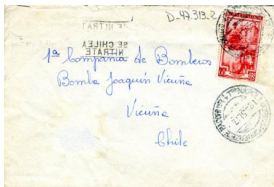 D-47.313-2
SE CHILEA
NITRATE
1ª Compañia de Bomberos
Bomba Joaquín Vicuña
Vicuña
Chile